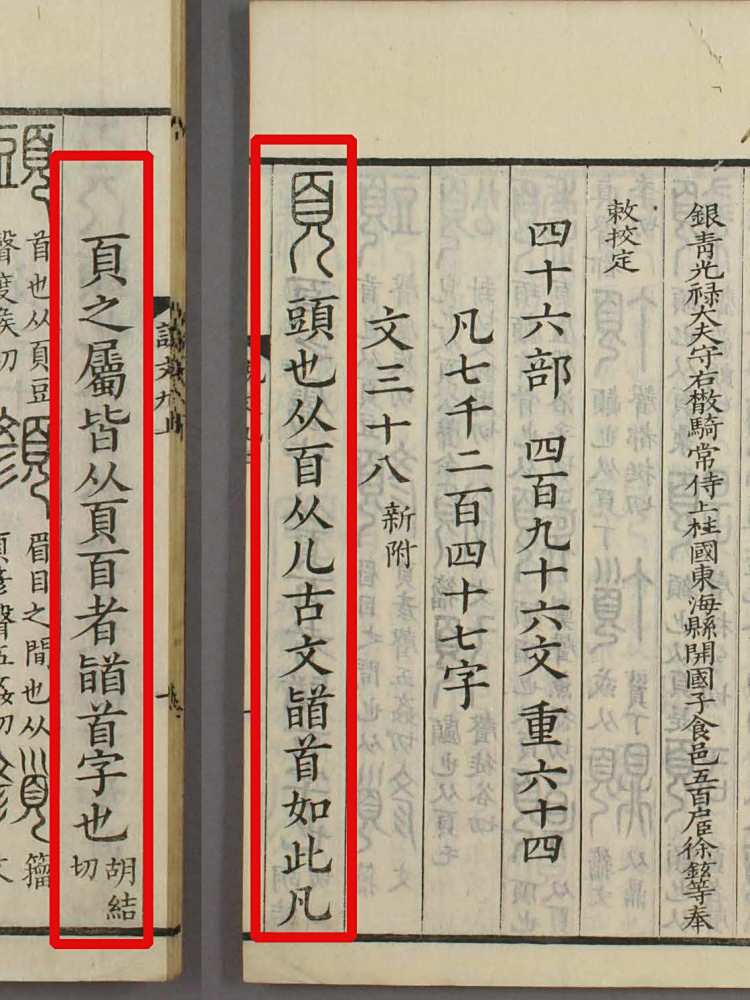 銀青光禄大夫守右散騎常侍上柱國東海縣開國子食邑五百戶臣徐鉉等奉
敕挍定
四十六部 四百九十六文 重六十四
凡七千二百四十七字
文三十八 新附
頁 頭也从𦣻从儿古文䭫首如此凡
說文九上
頁之屬皆从頁𦣻者䭫首字也 胡結切
頭 首也从頁豆聲度矦切 顏 眉目之間也从頁彥聲五姦切 籀文